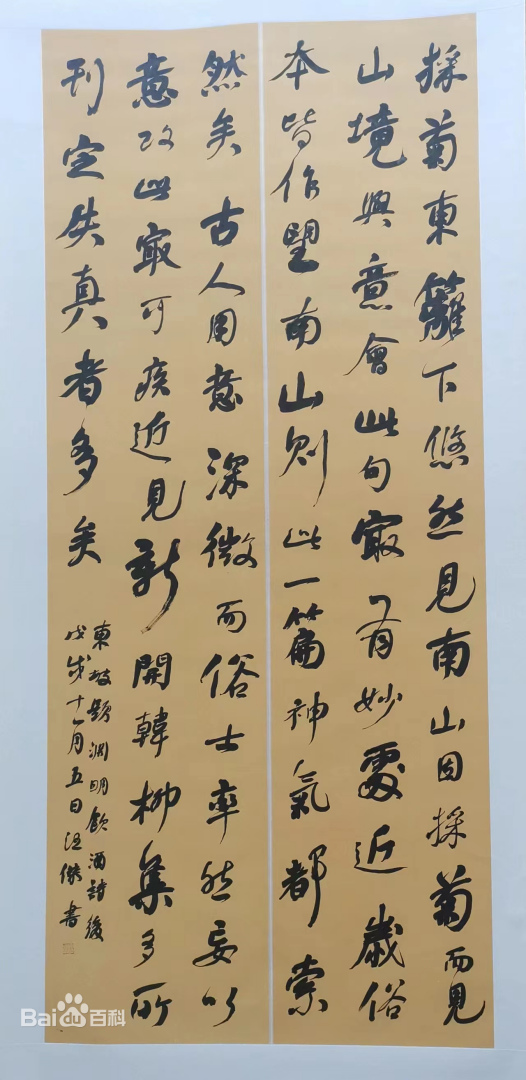 採菊東籬下悠然見南山因採菊而見
山境與意會此句最有妙處近歲俗
本皆作望南山則此一篇神氣都索
然矣古人用意深微而俗士率然妄以
意改此最可疾近見新開韓柳集多所
刊定失真者多矣
東坡題淵明飲酒詩後
戊戌十一月五日汪傑書
Bai du 百科